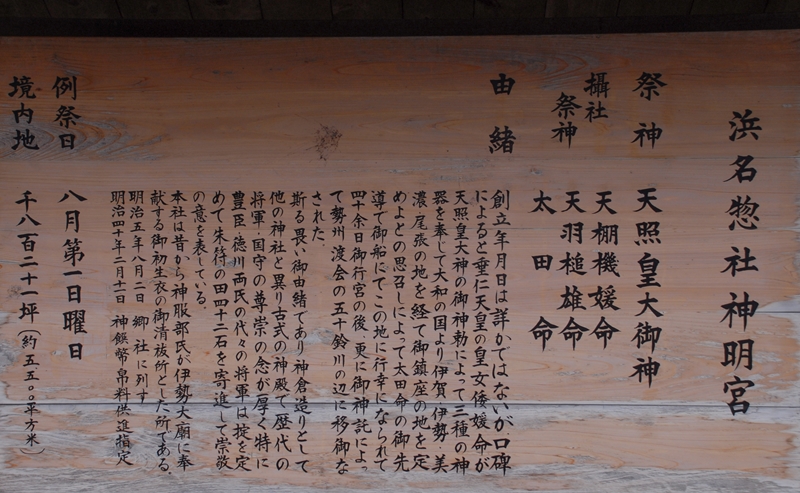 浜名惣社神明宮
祭神 天照皇大御神
攝社 天棚機媛命
祭神 天羽槌雄命
太田命
由緒
創立年月日は詳かではないが口碑
によると垂仁天皇の皇女倭媛命が
天照皇大神の御神勅によって三種の神
器を奉じて大和の国より伊賀 伊勢 美
濃 尾張の地を経て御鎮座の地を定
めよとの思召しによって太田命の御先
導で御船にてこの地に行幸になられて
四十余日御行宮の後 更に御神託によっ
て勢州 渡会の五十鈴川の辺に移御な
された。
斯る畏い御由緒であり神倉造りとして
他の神社と異り古式の神殿で歴代の
将軍・国守の尊崇の念が厚く特に
豊臣・徳川両氏の代々の将軍は掟を定
めて朱符の田四十二石を寄進して崇敬
の意を表している。
本社は昔から神服部氏が伊勢大廟に奉
献する御初生衣の御清祓所とした所である。
明治五年八月二日 郷社に列す
明治四十年二月十一日 神饌幣帛料供進指定
例祭日 八月第一日曜日
境内地 千八百二十一坪(約五五〇〇平方米)